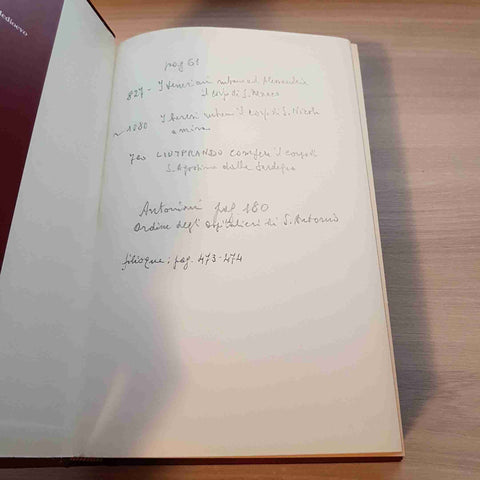 Medioevo
pag 61
827 - I veneziani rubano ad Alessandria
il corpo di S. Marco
~ 1080 I baresi rubano il corpo di S. Nicola
a mira
700 LIUTPRANDO comperò il corpo di
S. Agostino dalla Sardegna
Antoniani pag 180
Ordine degli ospitalieri di S. Antonio
filioque: pag. 473-474